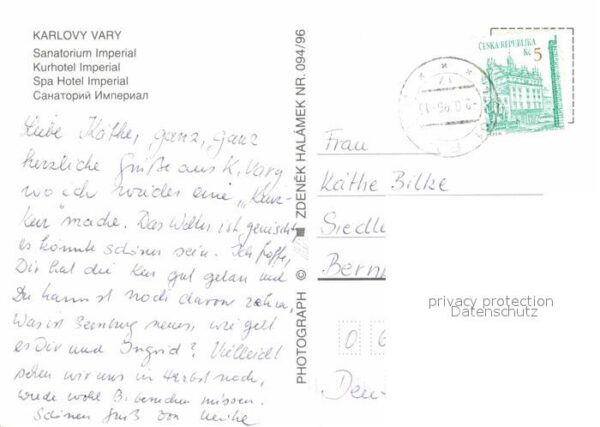 KARLOVY VARY
Sanatorium Imperial
Kurhotel Imperial
Spa Hotel Imperial
Санаторий Империал
Liebe Käthe, ganz, ganz
herzliche Grüße aus K. Vary
wo ich wieder eine „Kurz-
Kur" mache. Das Wetter ist gemischt
es könnte schöner sein. Ich hoffe,
Dir hat die Kur gut getan und
Du kannst noch davon zehren.
Was ist Bernburg neues, wie geht
es Dir und Ingrid? Vielleicht
sehen wir uns im Herbst noch,
werde wohl B. besuchen müssen.
Schönen Gruß von
PHOTOGRAPH © ZDENĚK HALÁMEK NR. 094/96
ČESKÁ REPUBLIKA
Kč 5
Frau
Käthe Bilke
Siedl
Bern
privacy protection
Datenschutz
0 6